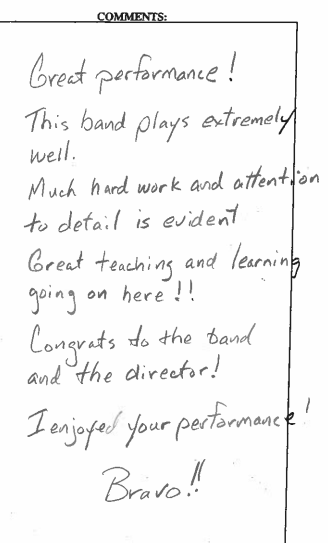 COMMENTS:
Great performance!
This band plays extremely
well.
Much hard work and attention
to detail is evident
Great teaching and learning
going on here!!
Congrats to the band
and the director!
I enjoyed your performance!
Bravo!!